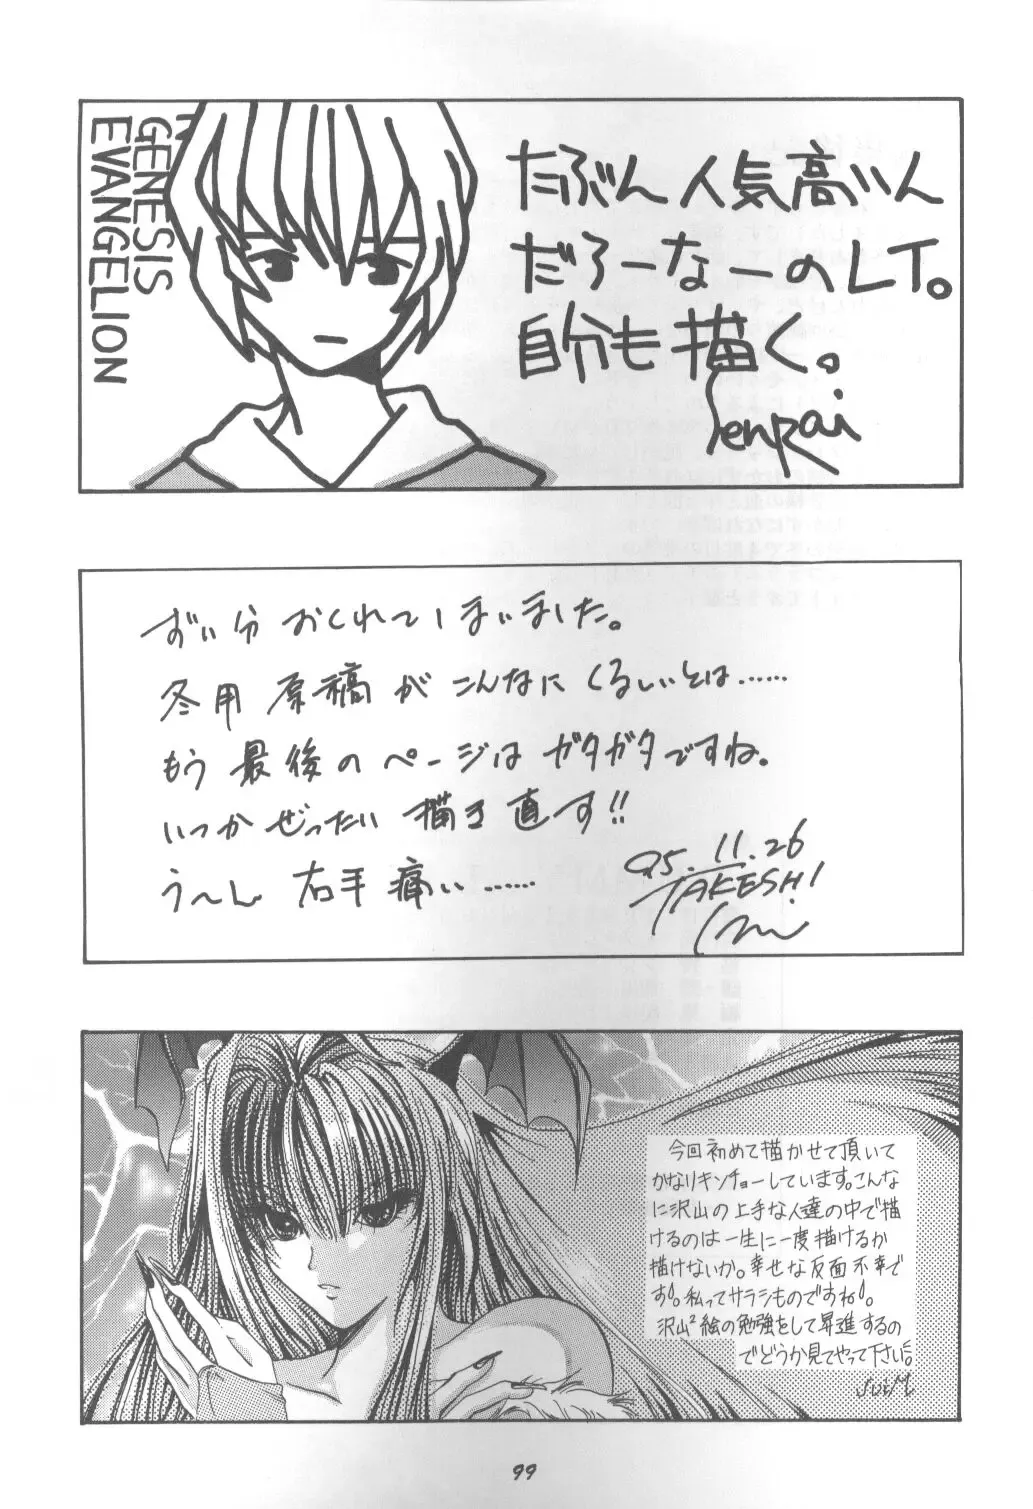 GENESIS
EVANGELION
たぶん人気高いん
だろーなーのLT。
自分も描く。
Senpai
ずい分おくれてしまいました。
冬用原稿がこんなにくるしいとは……
もう最後のページはガタガタですね。
いつかぜったい描き直す!!
う〜ん 右手痛い……
95.11.26
TAKESHI
今回初めて描かせて頂いて
かなりキンチョーしています。こんな
に沢山の上手な人達の中で描
けるのは一生に一度描けるか
描けないか。幸せな反面不幸で
す!。私ってサラシものですね!。
沢山²絵の勉強をして昇進するの
でどうか見てやって下さい。
SuiM
99